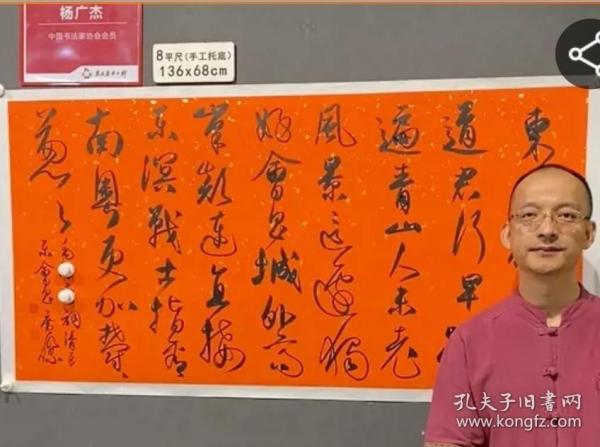 杨广杰
中国书法家协会会员
8平尺(手工托底)
136x68cm
東
道君行早
遍青山人未老
風景这邊獨
好會昌城外高
峰巅连直接
东溟战士指看
南粤更加郁
葱
孔夫子旧书网
www.kongfz.com